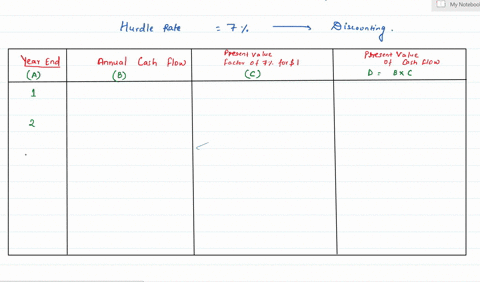 My Notebook
Hurdle Rate = 7% → Discounting.
Year End (A)
Annual Cash Flow (B)
Present Value
factor of 7% for $1
(C)
Present Value
of Cash flow
D = B×C
1
2